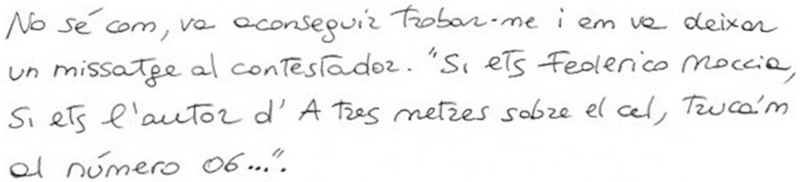 No sé com, va aconseguir trobar-me i em va deixar
un missatge al contestador. "Si ets Federico Moccia,
Si ets l'autor d' A tres metres sobre el cel, truca'm
al número 06...".